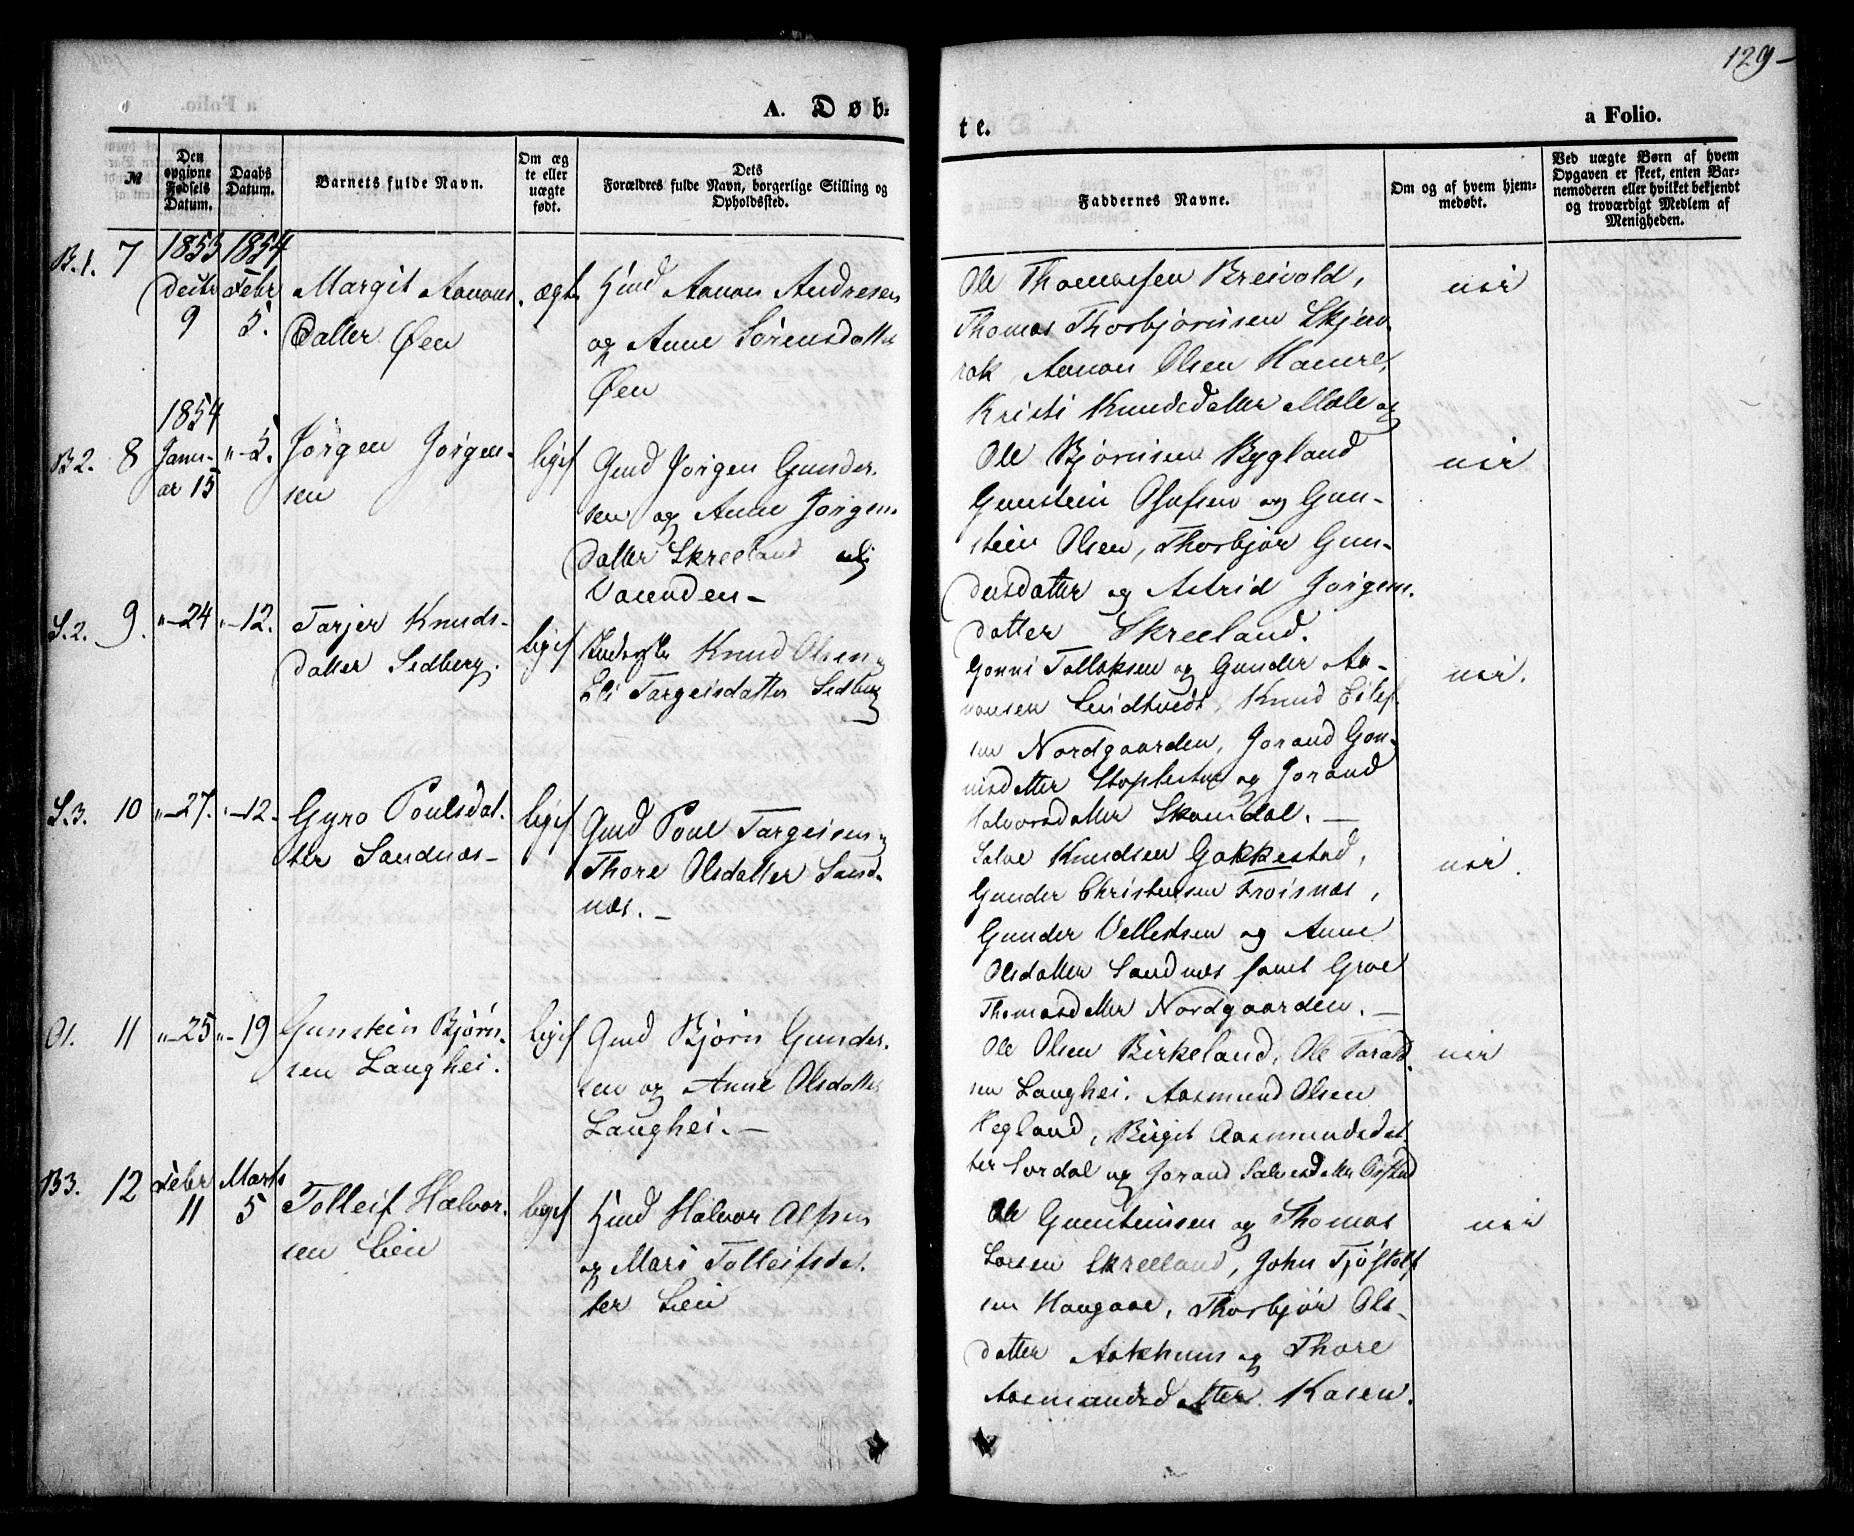 129-
A. Døb-
te.
a Folio.
№
Den opgivne Fødsels Datum.
Daabs Datum.
Barnets fulde Navn.
Om ægte eller uægte født.
Dets Forældres fulde Navn, borgerlige Stilling og Opholdssted.
Faddernes Navne.
Om og af hvem hjemmedøbt.
Ved uægte Børn af hvem Opgaven er skeet, enten Barnemoderen eller hvilket bekjendt og troværdigt Medlem af Menigheden.
B.1. 7
1853
Decbr
9
1854
Febr
5.
Margit Aanons
datter Øen
ægte
Gmd Aanon Andresen
og Anne Sørensdatter
Øen
Ole Thomassen Breivold,
Thomas Thorbjørnsen Skjeu
rak, Aanon Olsen Hamre,
Kristi Knudsdatter Mole og
nei
B2. 8
1854
Janu-
ar 15
"-5.
Jørgen Jørgen-
sen
liges
Gmd Jørgen Gunder
sen og Anne Jørgens
datter Skreeland
Vaanden-
Ole Bjørnsen Bygland
Gunstein Olafsen og Gun-
stein Olsen, Thorbjør Gun-
dersdatter og Astrid Jørgens
datter Skreeland.
nei
S.2. 9.
"-24
"-12.
Tarjer Knuds-
datter Sedberg.
ligef
Knud Olsen
Eli Targeisdatter Sedberg
Gonni Tallaksen og Gunder Aa-
nonsen Lindtvedt, Knud Eilef
sen Nordgaarden, Jorand Gon-
nisdatter og Jorand
Halvorsdatter Skomdal.-
nei.
S.3. 10
"-27.
"-12.
Gyro Poulsdat.
ter Sandnæs-
ligef
Gmd Poul Targeisen
Thore Olsdatter Sand-
næs.-
Salve Knudsen Gakkestad,
Gunder Christensen Frøisnæs,
Gunder Vellesen og Anne
Olsdatter Sandnæs samt Groe
Thomasdatter Nordgaarden.-
nei.
O1. 11
"-25
"-19
Gunstein Bjørn-
sen Langhei.
ligef
Gmd Bjørn Gunder.
sen og Anne Olsdatter
Langhei.-
Ole Olsen Birkeland, Ole Tarald
sen Langhei. Aasmund Olsen
Hegland, Birgit Aasmundsdat
ter Sordal og Jorand Salvesdatter
nei
B3. 12
Febr
11
Marts
5
Tolleif Halvor.
sen Lien
ligef
Gmd Halvor Alfsen
og Mari Tolleifsdat.
ter Lien
Ole Gunsteinsen og Thomas
Larsen Skreeland, John Tjøstolf
sen Haugaae, Thorbjør Ols-
datter Aakhuus og Thore
Aasmundsdatter Kasen.
nei